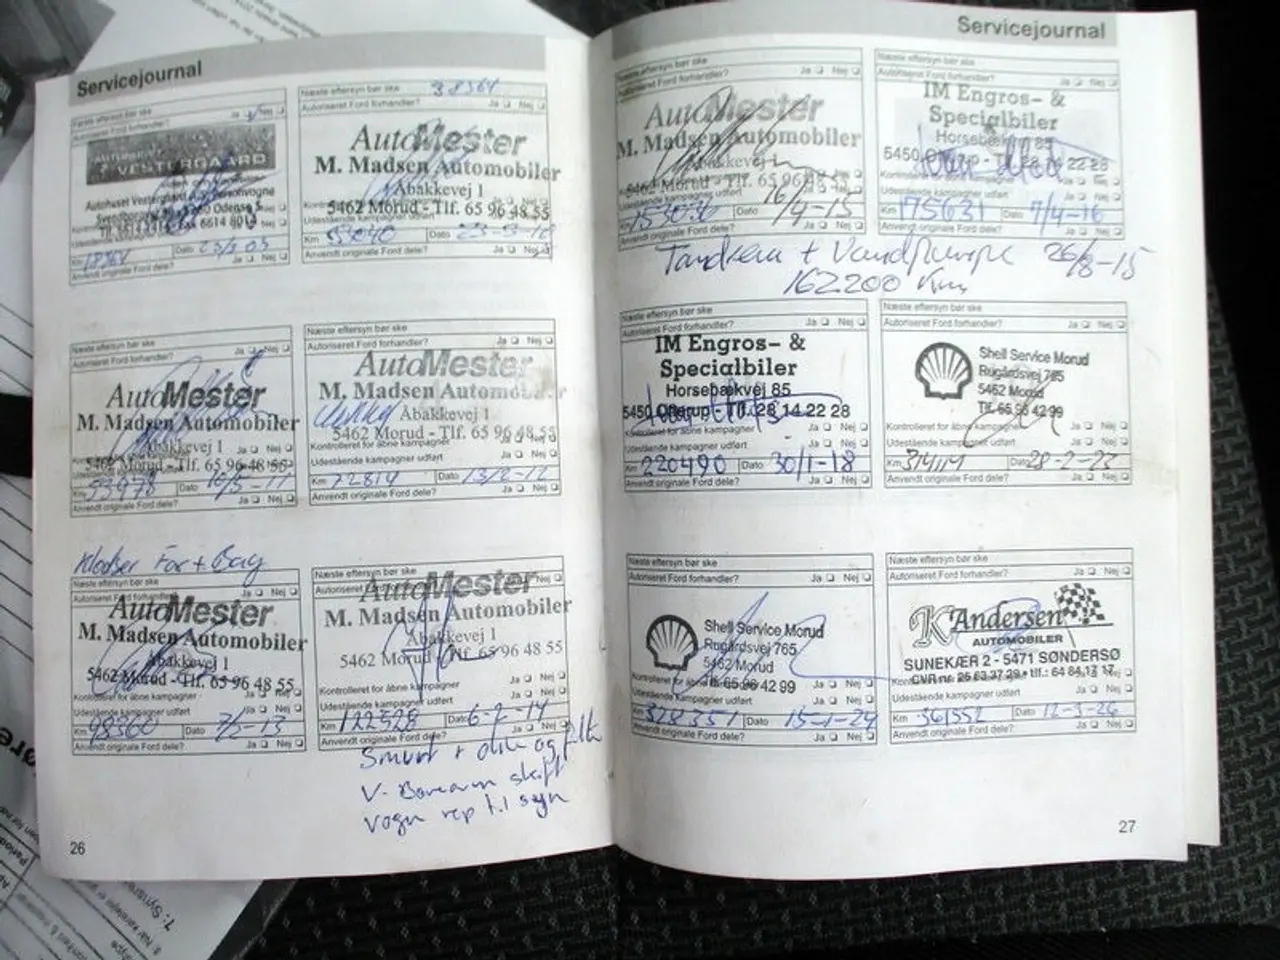 Servicejournal
Første eftersyn bør ske
Autoriseret Ford forhandler? Ja Nej
VESTERGAARD
Km 18364 Dato
Anvendt originale Ford dele? Ja Nej
Næste eftersyn bør ske 38364
Autoriseret Ford forhandler? Ja Nej
AutoMester
M. Madsen Automobiler
Abakkevej 1
5462 Morud - Tlf. 65 96 48 55
Udestående kampagner udført
Km Dato
Anvendt originale Ford dele? Ja Nej
Næste eftersyn bør ske
Autoriseret Ford forhandler? Ja Nej
AutoMester
M. Madsen Automobiler
Abakkevej 1
5462 Morud - Tlf. 65 96 48 55
Udestående kampagner udført
Km 53978 Dato 16/5-11
Anvendt originale Ford dele? Ja Nej
Næste eftersyn bør ske
Autoriseret Ford forhandler? Ja Nej
AutoMester
M. Madsen Automobiler
Abakkevej 1
5462 Morud - Tlf. 65 96 48 55
Kontrolleret for åbne kampagner Ja Nej
Udestående kampagner udført Ja Nej
Km 72819 Dato 13/2-12
Anvendt originale Ford dele? Ja Nej
Klodser For + Bag
Næste eftersyn bør ske
Autoriseret Ford forhandler? Ja Nej
AutoMester
M. Madsen Automobiler
Abakkevej 1
5462 Morud - Tlf. 65 96 48 55
Kontrolleret for åbne kampagner Ja Nej
Udestående kampagner udført Ja Nej
Km 98360 Dato 7/5-13
Anvendt originale Ford dele? Ja Nej
Næste eftersyn bør ske
Autoriseret Nej
AutoMester
M. Madsen Automobiler
Abakkevej 1
5462 Morud - Tlf. 65 96 48 55
Kontrolleret for åbne kampagner Ja Nej
Udestående kampagner udført Ja Nej
Km 122528 Dato 6-2-14
Anvendt originale Ford dele? Ja Nej
Smurt + olie og filt
V- Bærearm skift
Vogn rep til syn
26
Servicejournal
Næste eftersyn bør ske
Autoriseret Ford forhandler? Ja Nej
AutoMester
M. Madsen Automobiler
Abakkevej 1
5462 Morud - Tlf. 65 96 48 55
Udestående kampagner udført
Km 153036 Dato 16/4-15
Anvendt originale Ford dele? Ja Nej
Næste eftersyn bør ske
Autoriseret Ford forhandler? Ja Nej
IM Engros- &
Specialbiler
Horsebækvej 85
5450 Otterup - Tlf. 28 14 22 28
Udestående kampagner udført Ja Nej
Km 175631 Dato 7/4-16
Anvendt originale Ford dele? Ja Nej
Tandrem + Vandpumpe 26/8-15
162.200 Km
Næste eftersyn bør ske
Autoriseret Ford forhandler? Ja Nej
IM Engros- &
Specialbiler
Horsebækvej 85
5450 Otterup - Tlf. 28 14 22 28
Kontrolleret for åbne kampagner Ja Nej
Udestående kampagner udført Ja Nej
Km 220490 Dato 30/1-18
Anvendt originale Ford dele? Ja Nej
Næste eftersyn bør ske
Autoriseret Ford forhandler? Ja Nej
Shell Service Morud
Rugårdsvej 765
5462 Morud
Tlf. 65 96 42 99
Kontrolleret for åbne kampagner Ja Nej
Udestående kampagner udført Ja Nej
Km 314114 Dato 28-2-23
Anvendt originale Ford dele? Ja Nej
Næste eftersyn bør ske
Autoriseret Ford forhandler? Ja Nej
Shell Service Morud
Rugårdsvej 765
5462 Morud
Tlf. 65 96 42 99
Kontrolleret for åbne Ja Nej
Udestående kampagner udført Ja Nej
Km 328351 Dato 15-1-24
Anvendt originale Ford dele? Ja Nej
Næste eftersyn bør ske
Autoriseret Ford forhandler? Ja Nej
K Andersen
AUTOMOBILER
SUNEKÆR 2 - 5471 SØNDERSØ
CVR nr. 25 63 37 29 • tlf.: 64 84 17 17
Udestående kampagner udført Ja Nej
Km 361552 Dato 12-3-26
Anvendt originale Ford dele? Ja Nej
27